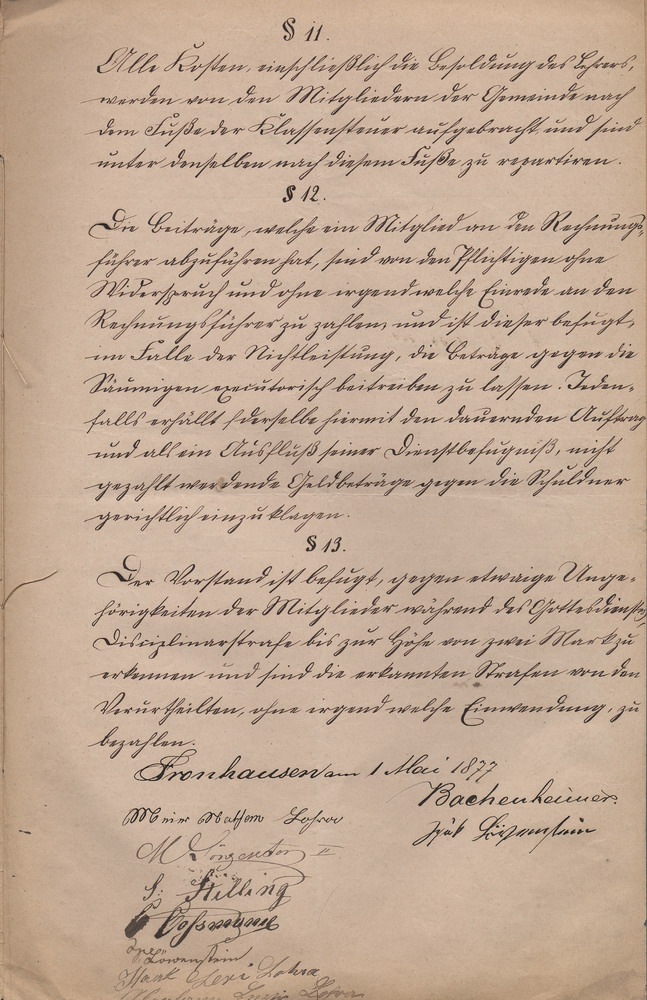 § 11.
Alle Kosten, einschließlich die Besoldung des Lehrers,
werden von den Mitgliedern der Gemeinde nach
dem Fuße der Klassensteuer aufgebracht und sind
unter denselben nach diesem Fuße zu repartiren.
§ 12.
Die Beiträge, welche ein Mitglied an den Rechnungs-
führer abzuführen hat, sind von den Pflichtigen ohne
Widerspruch und ohne irgend welche Einrede an den
Rechnungsführer zu zahlen, und ist dieser befugt,
im Falle der Nichtleistung, die Beträge gegen die
Säumigen executorisch beitreiben zu lassen. Jeden-
falls erhällt derselbe hiermit den dauernden Auftrag
und als ein Ausfluß seiner Dienstbefugniß, nicht
gezahlt werdende Geldbeträge gegen die Schuldner
gerichtlich einzuklagen.
§ 13.
Der Vorstand ist befugt, gegen etwaige Unge-
hörigkeiten der Mitglieder während des Gottesdienstes,
Disciplinarstrafe bis zur Höhe von zwei Mark zu
erkennen und sind die erkannten Strafen von den
Verurtheilten, ohne irgend welche Einwendung, zu
bezahlen.
Fronhausen am 1 Mai 1877
Bachenheimer.
Meier Lohra
Löwenstein
M
S. Stilling
Löwenstein
Isaak Lohra
Lohra